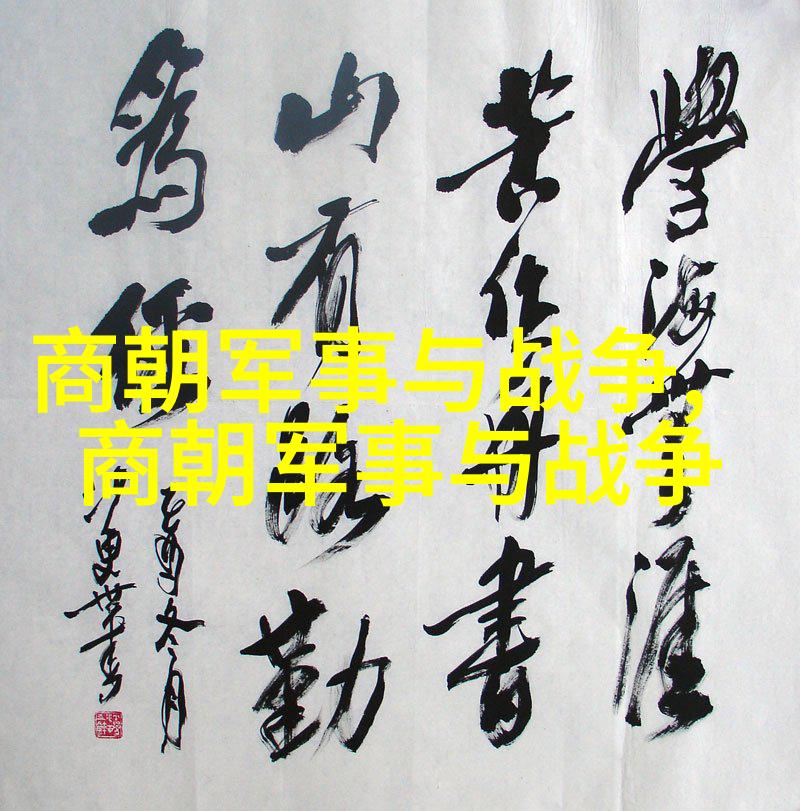 商朝军事与战争,
商朝军事与战争
學海無涯
苦作舟書
山有路勤
為徑
乙酉冬月